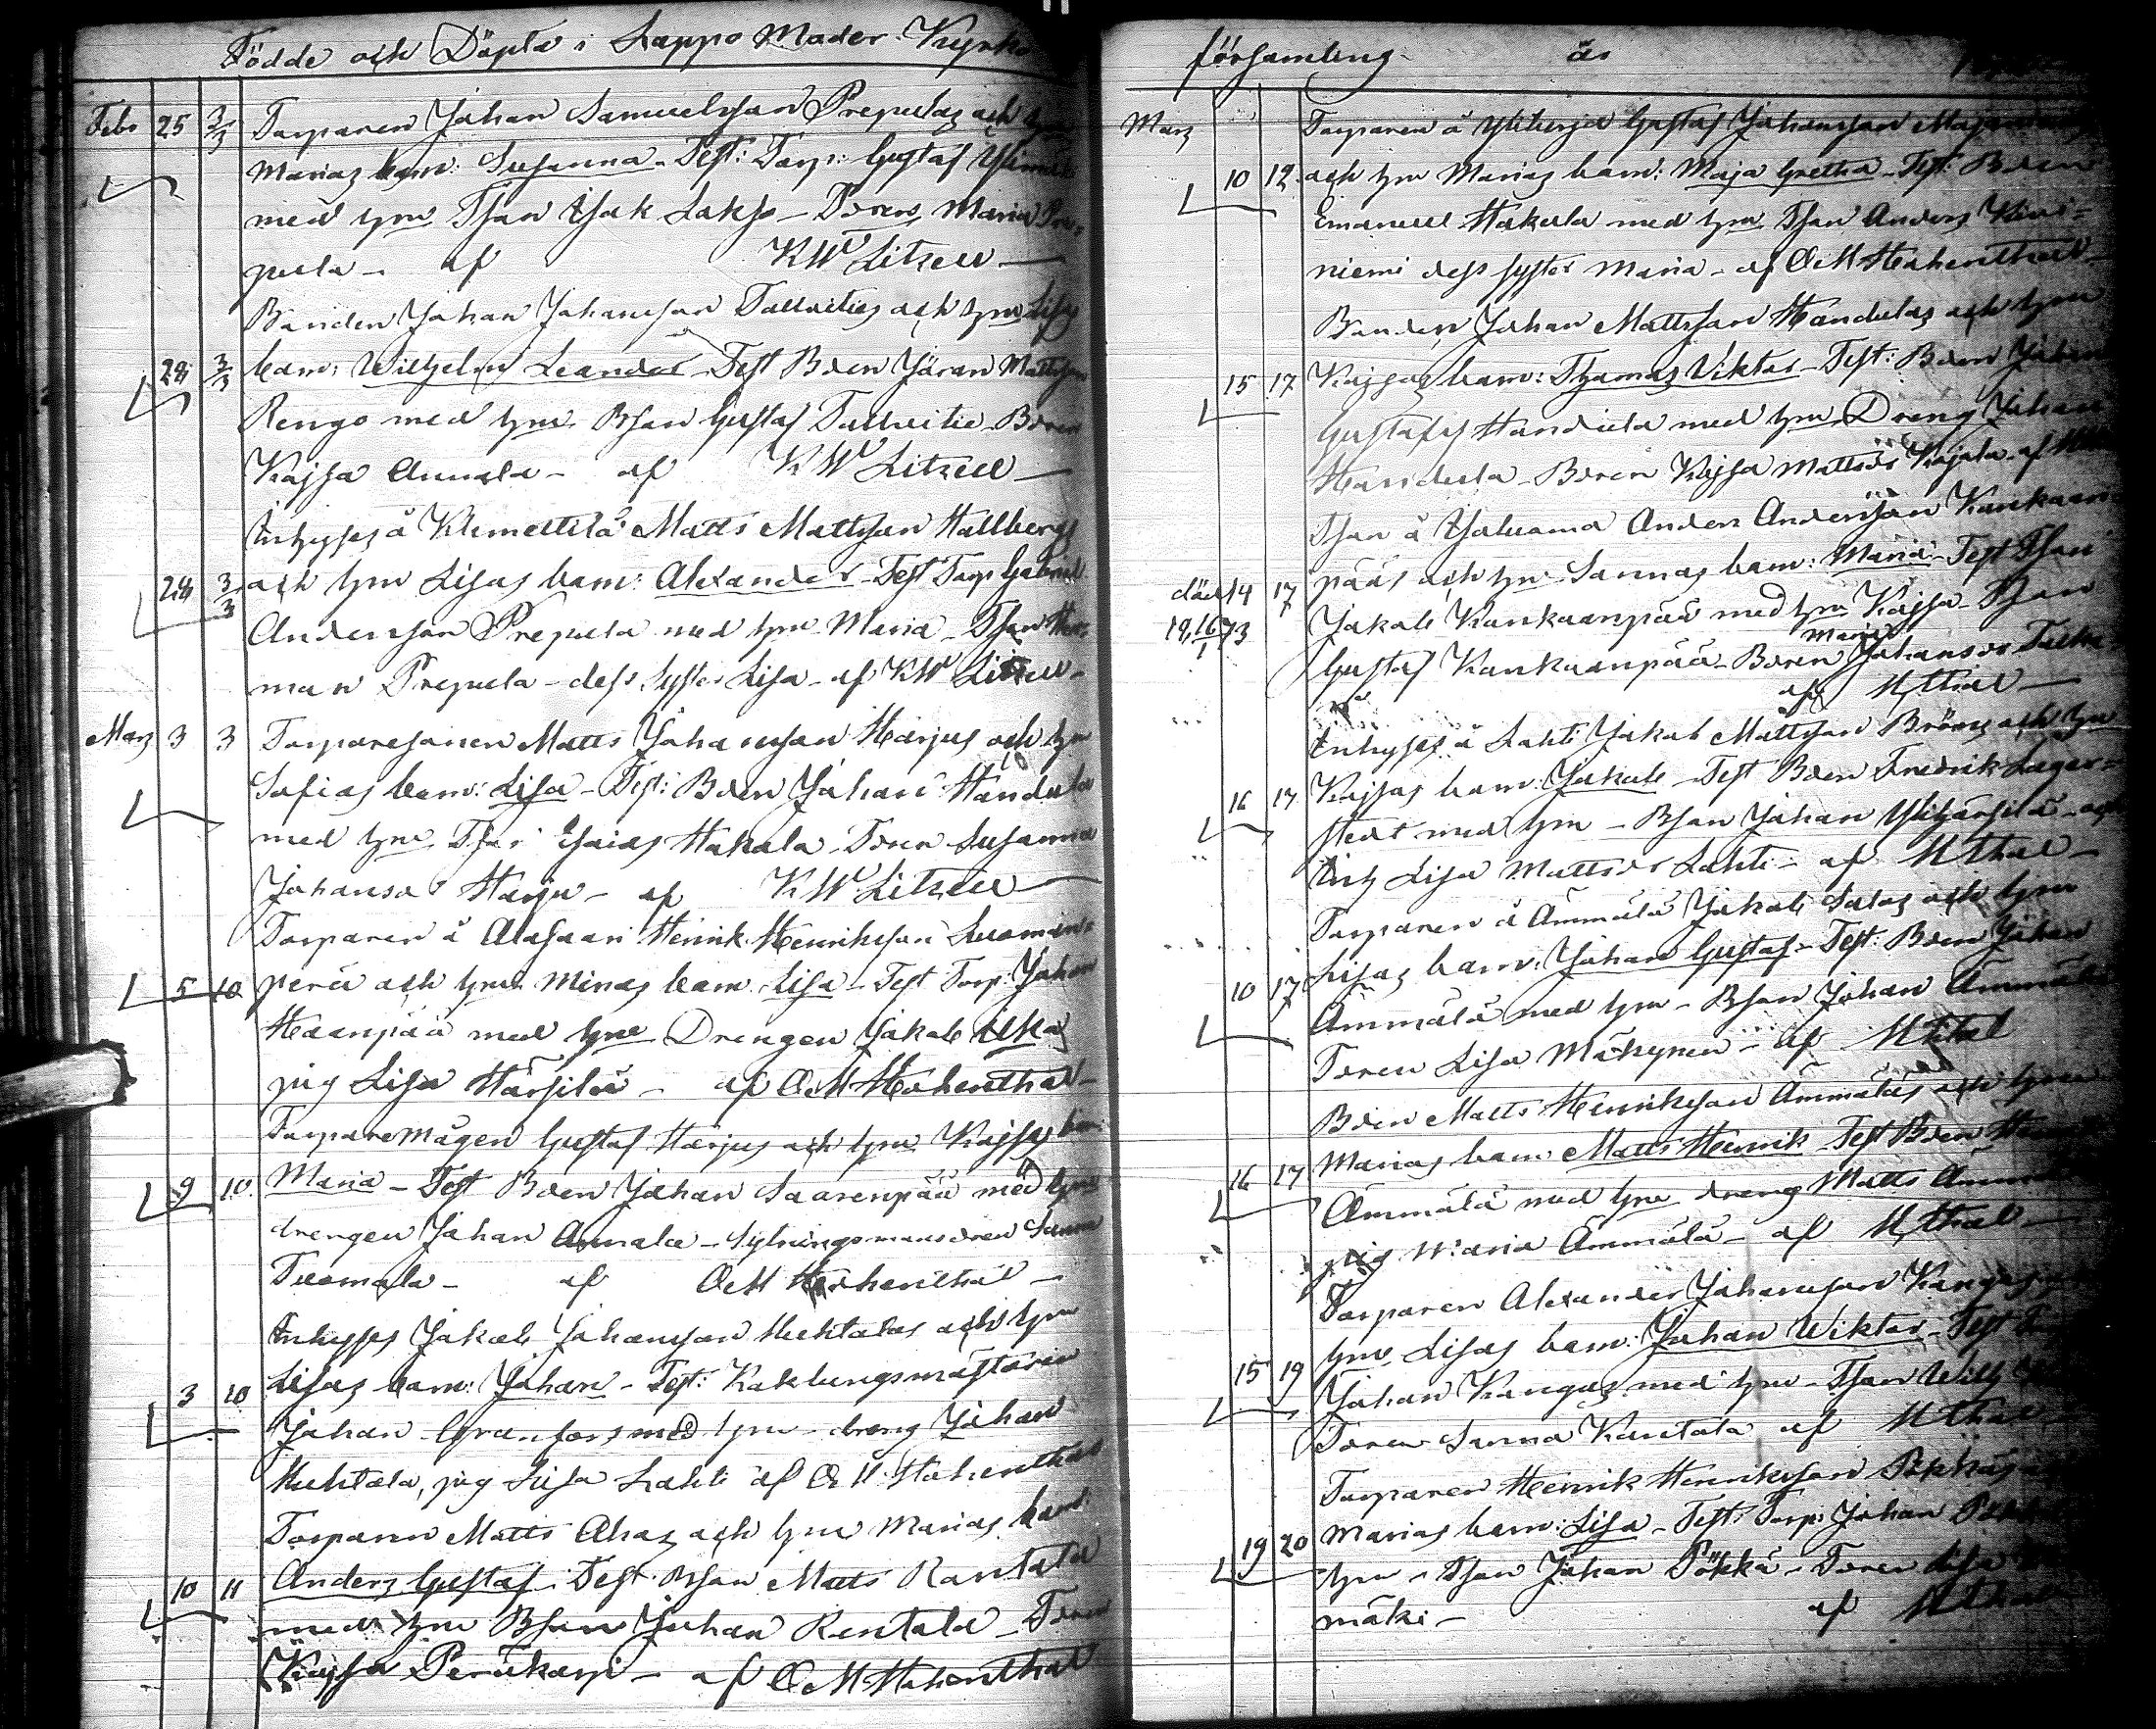 Födde och Döpta i Lappo Moder Kyrko
Febr 25 3/3 Torparen Johan Samuelsson Prepulas och hm
Marias barn: Susanna - Test: Torp: Gustaf
med hm Tson Isak Laksо - Doren Maria Pre-
pula - af KW Litzell
Bonden Johan Johansson Tallvities och hm Lisas
28 3/3 barn: Wilhelm Leander - Test Bden Jöran Mattsson
Rengo med hm Bson Gustaf Tallvitie - Bdren
Kajsa Annala - af KW Litzell
Inhyses å Klemettilä Matts Mattsson Hallbergs
28 3/3 och hm Lisas barn: Alexander - Test Torp Gabriel
Andersson Prepula med hm Maria - Tson Her-
man Prepula - dess Syster Lisa - af KW Litzell -
Mars 3 3 Torparesonen Matts Johansson Harjus och hm
Sofias barn: Lisa - Test: Bden Johan Handula
med hm Tson Esaias Hakala Doren Susanna
Johansdr Harju - af KW Litzell
Torparen å Alasaari Henrik Henriksson Luoman-
5 10 perä och hm Minas barn Lisa - Test Torp: Johan
Haanpää med hm Drengen Jakob Ilka
pig Lisa Härsilä - af OM Hohenthal -
Torparemågen Gustaf Harjus och hm Kajsas
9 10 Maria - Test Bden Johan Saarenpää med hm
drengen Johan Annala - Sytningsmansdren Sanna
Tuomala - af OM Hohenthal -
Inhyses Jakob Johansson Huhtalas och hm
3 10 Lisas barn: Johan - Test: Kakelungsmästaren
Johan Granfors med hm - dreng Johan
Huhtala, pig Lisa Lahti af OM Hohenthal
Torparen Matts Ahas och hm Marias barn
10 11 Anders Gustaf - Test Bson Matts Rantala
med hm Bson Johan Rentala - Doren
Kajsa Peräkorpi - af OM Hohenthal
församling år
Mars Torparen å Gustaf Johansson
10 12 och hm Marias barn: Maja Gretha - Test: Bden
Emanuel Hakala med hm Tson Anders Kivi-
niemi dess syster Maria - af OM Hohenthal
Bonden Johan Mattsson Handulas och hm
15 17 Kajsas barn: Thomas Viktor - Test: Bden Johan
Gustafss Handula med hm Dreng Johan
Handula - Bdren Kajsa Mattsdr Kojola - af
Tson å Anders Andersson Kankaan-
död 14 17 pääs och hm Sannas barn: Maria - Test Tson
19,16/1 73 Jakob Kankaanpää med hm Kajsa - Bson
Maria
Gustaf Kankaanpää - Bdren Johansdr
af Hthal
Inhyses å Lahti Jakob Mattsson och hm
16 17 Kajsas barn: Jakob - Test Bden Fredrik Lager-
stedt med hm - Bson Johan Ylihärsilä - och
Inh Lisa Mattsdr Lahti - af Hthal -
Torparen å Ämmälä Jakob Salos och hm
10 17 Lisas barn: Johan Gustaf - Test: Bden Johan
Ämmälä med hm - Bson Johan Ämmälä
Doren Lisa Mäkynen - af Hthal
Bden Matts Henriksson Ämmäläs och hm
16 17 Marias barn Matts Henrik - Test Bden
Ämmälä med hm dreng Matts
pig Maria Ämmälä - af Hthal -
Torparen Alexander Johansson Kangas
15 19 hm Lisas barn: Johan Wiktor - Test
Johan Kangas med hm - Tson Wilh
Doren Sanna Kantola af Hthal
Torparen Henrik Henriksson
19 20 Marias barn: Lisa - Test: Torp: Johan
hm - Tson Johan Pökkä - Doren Lisa
mäki - af Hthal